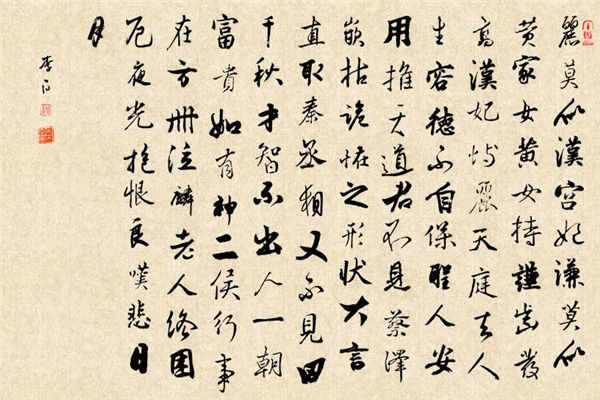 麗莫似漢宫妃謙莫似
黄家女黄女持謙齒發
高漢妃恃麗天庭去人
生容德不自保聖人安
用推天道君不見蔡澤
嵌枯詭怪之形狀大言
直取秦丞相又不見田
千秋才智不出人一朝
富貴如有神二侯行事
在方冊泣麟老人终困
厄夜光抱恨良嘆悲日
月
李白